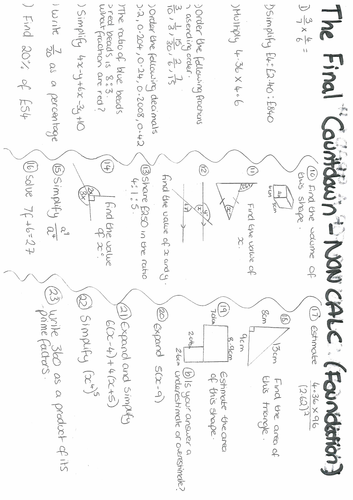 The Final Countdown - NON CALC. (Foundation)
1) 3/4 × 4/6 =
Simplify £4 : £2.40 : £8.40
Multiply 4.36 × 4.6
Order the following fractions
ascending order.
Order the following decimals
0.204, 0.24, 0.2008, 0.42
The ratio of blue beads
red beads is 8:3
what fraction are red?
Simplify 4x - y + 6x - 3y + 10
write 7/20 as a percentage
) Find 20% of £54
(10) Find the volume of
this shape.
(11) Find the value of
x.
(12)
Find the value of x and y.
(13) Share £250 in the ratio
4 : 1 : 5
(14) Find the value
of x.
3x
(15) Simplify a⁹/a⁴
(16) Solve 7f + 6 = 27
(17) Estimate 4.36 × 96 / (2.62)²
(18) Find the area of
this triangle.
8cm
13cm
9cm
(19) Estimate the area
of this shape.
(b) Is your answer a
underestimate or overestimate?
(20) Expand 5(x - 9)
(21) Expand and simplify
6(x - 4) + 4(x + 5)
(22) Simplify (x⁴)⁵
(23) Write 360 as a product of its
prime factors.